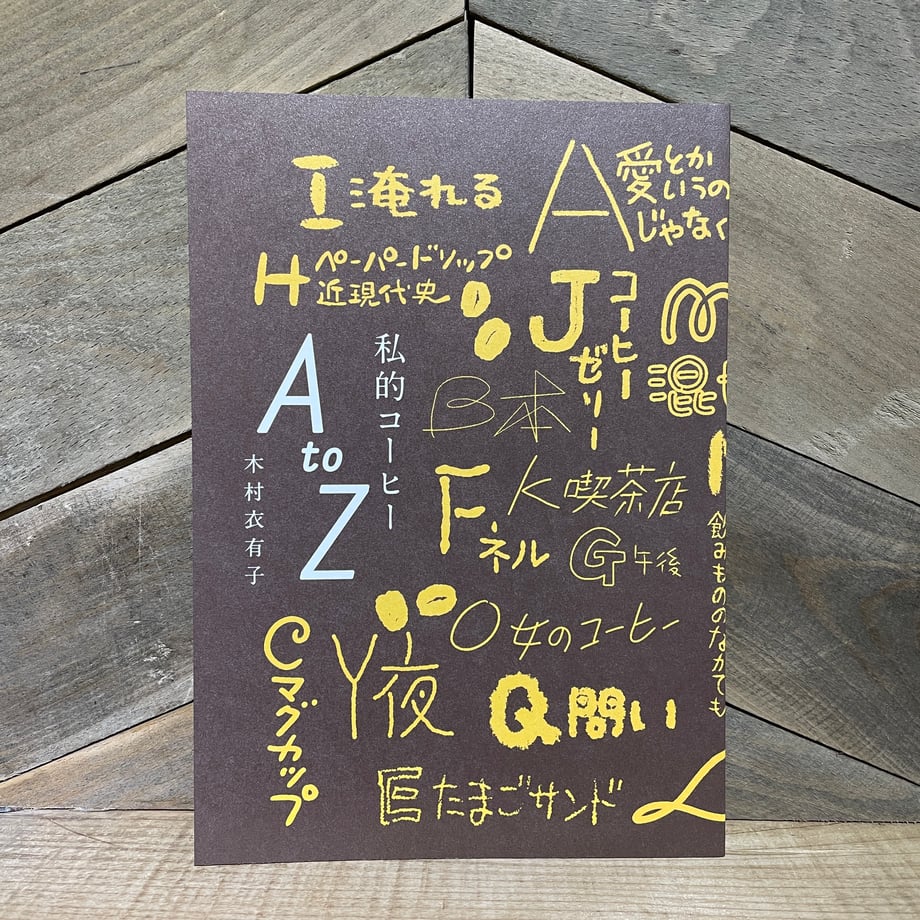 I 淹れる
A 愛とか
いうの
じゃなく
H ペーパードリップ
近現代史
J コーヒー
ゼリー
M
混
私的コーヒー
A to Z
木村衣有子
B 本
F ネル
K 喫茶店
G 午後
飲みもののなかでも
O 女のコーヒー
Y 夜
C マグカップ
Q 問い
E たまごサンド
L